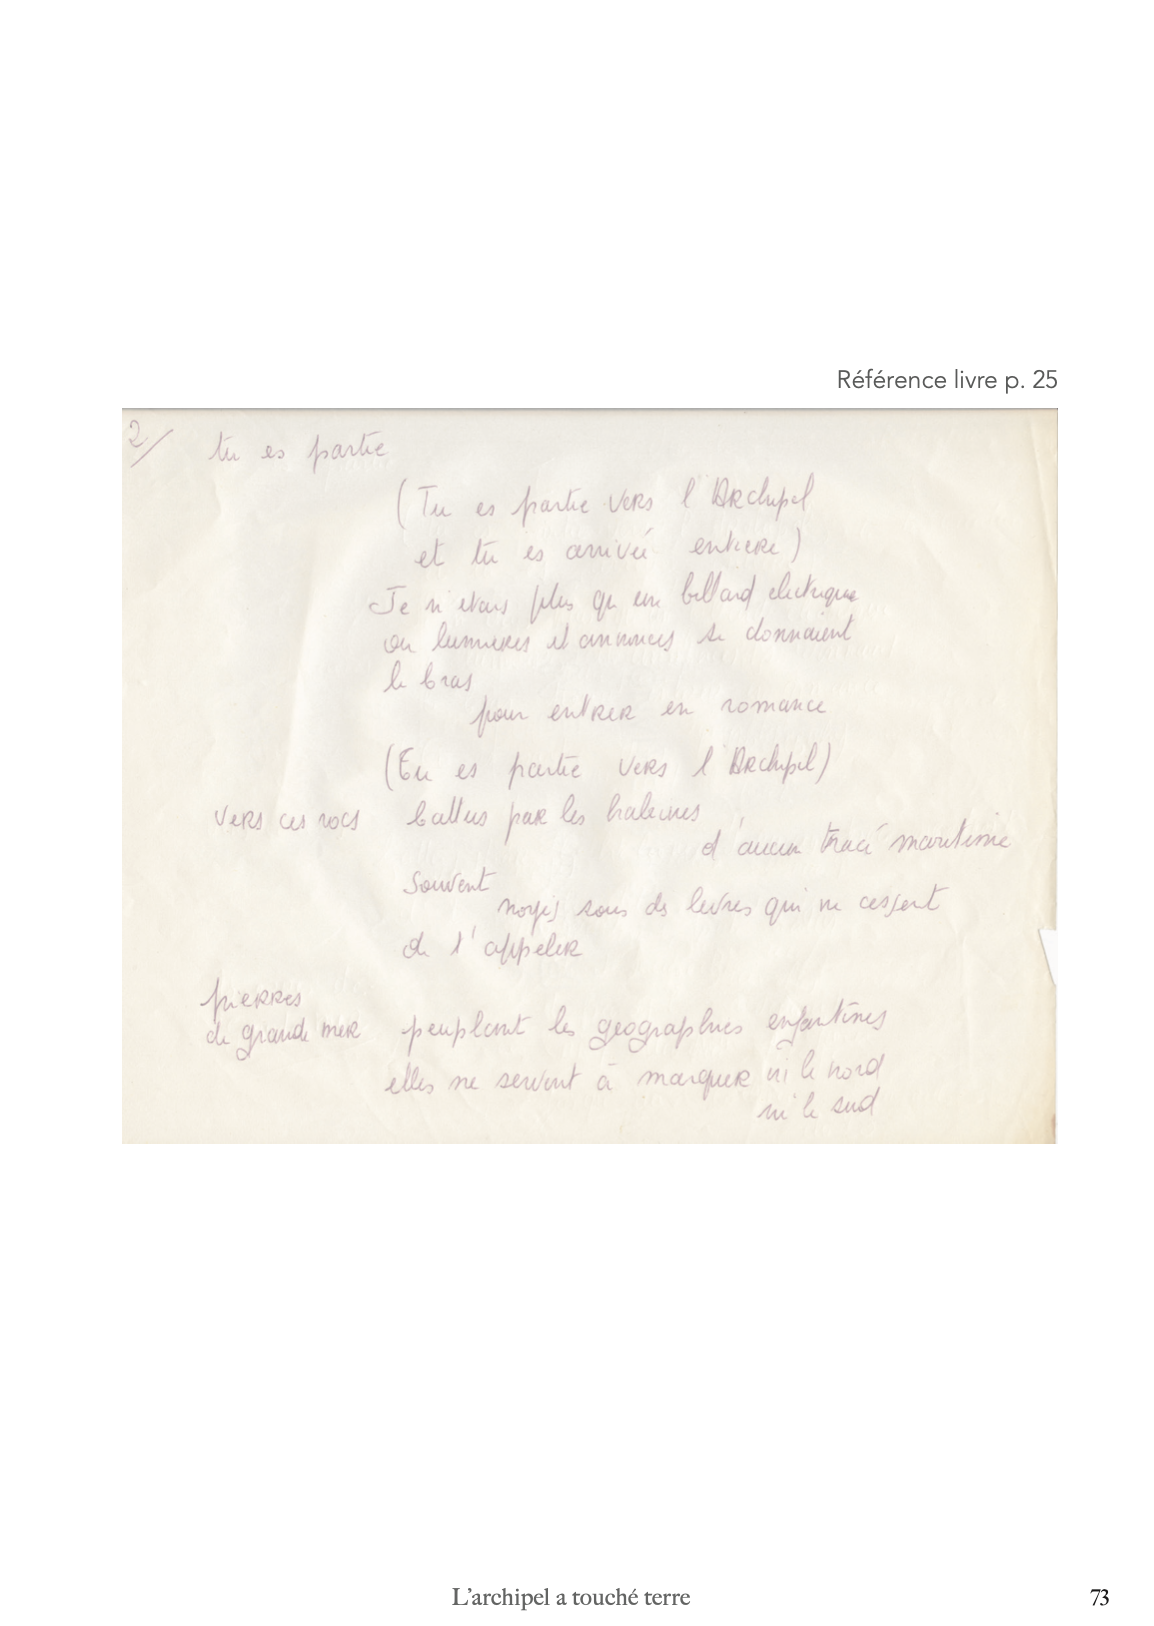 Référence livre p. 25
2/ tu es partie
(Tu es partie vers l'Archipel
et tu es arrivée entiere)
Je n'etais plus qu'un billard electrique
ou lumieres et annonces se donnaient
le bras
pour entrer en romance
(Tu es partie vers l'Archipel)
vers ces rocs battus par les haleines
d'aucun tracé maritime
Souvent
noyés sous des levres qui ne cessent
de l'appeler
pierres
de grande mer peuplant les geographies enfantines
elles ne servent à marquer ni le nord
ni le sud
L'archipel a touché terre
73